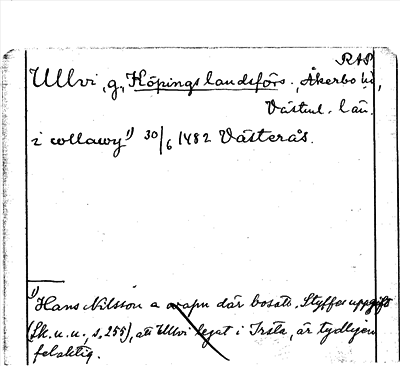 RAP
Ullvi, g., Köpings landsförs., Åkerbo hd,
Västml. län.
i wllawy 1) 30/6 1482 Västerås.
1) Hans Nilsson a vapn där bosatt. Styffes uppgift
(Sk. u. u., s. 255), att Ullvi legat i Irsta, är tydligen
felaktig.